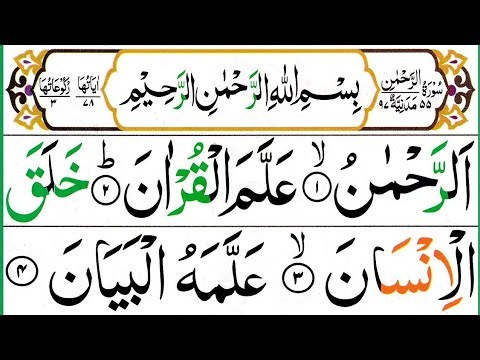 سُوْرَةُ الرَّحْمٰنِ ٥٥ مَدَنِيَّةٌ ٩٧ بِسْمِ اللهِ الرَّحْمٰنِ الرَّحِيْمِ اٰيَاتُهَا ٧٨ رُكُوْعَاتُهَا ٣
اَلرَّحْمٰنُ ۙ﴿١﴾ عَلَّمَ الْقُرْاٰنَ ؕ﴿٢﴾ خَلَقَ
الْاِنْسَانَ ۙ﴿٣﴾ عَلَّمَهُ الْبَيَانَ ﴿۴﴾